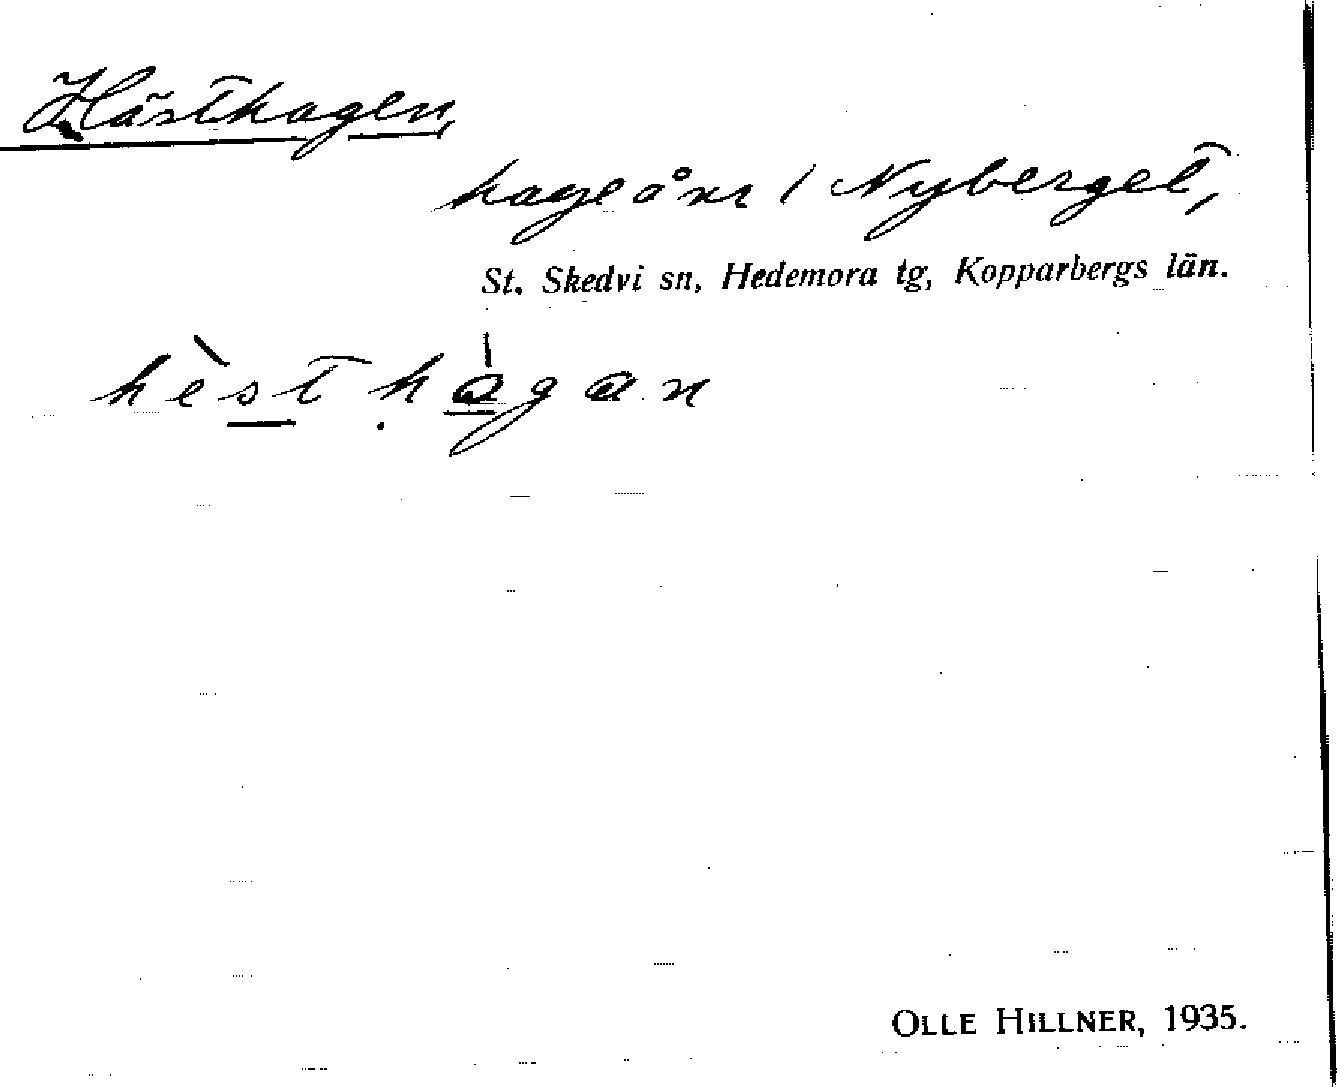 Hästhagen,
hage å nr 1 Nyberget,
St. Skedvi sn, Hedemora tg, Kopparbergs län.
hèsthàgan
OLLE HILLNER, 1935.